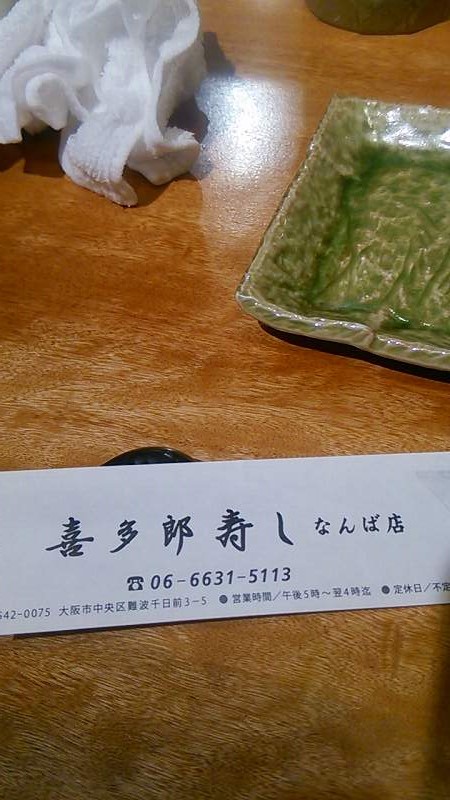 喜多郎寿し なんば店
☎06-6631-5113
542-0075 大阪市中央区難波千日前3-5 ●営業時間/午後5時〜翌4時迄 ●定休日/不定